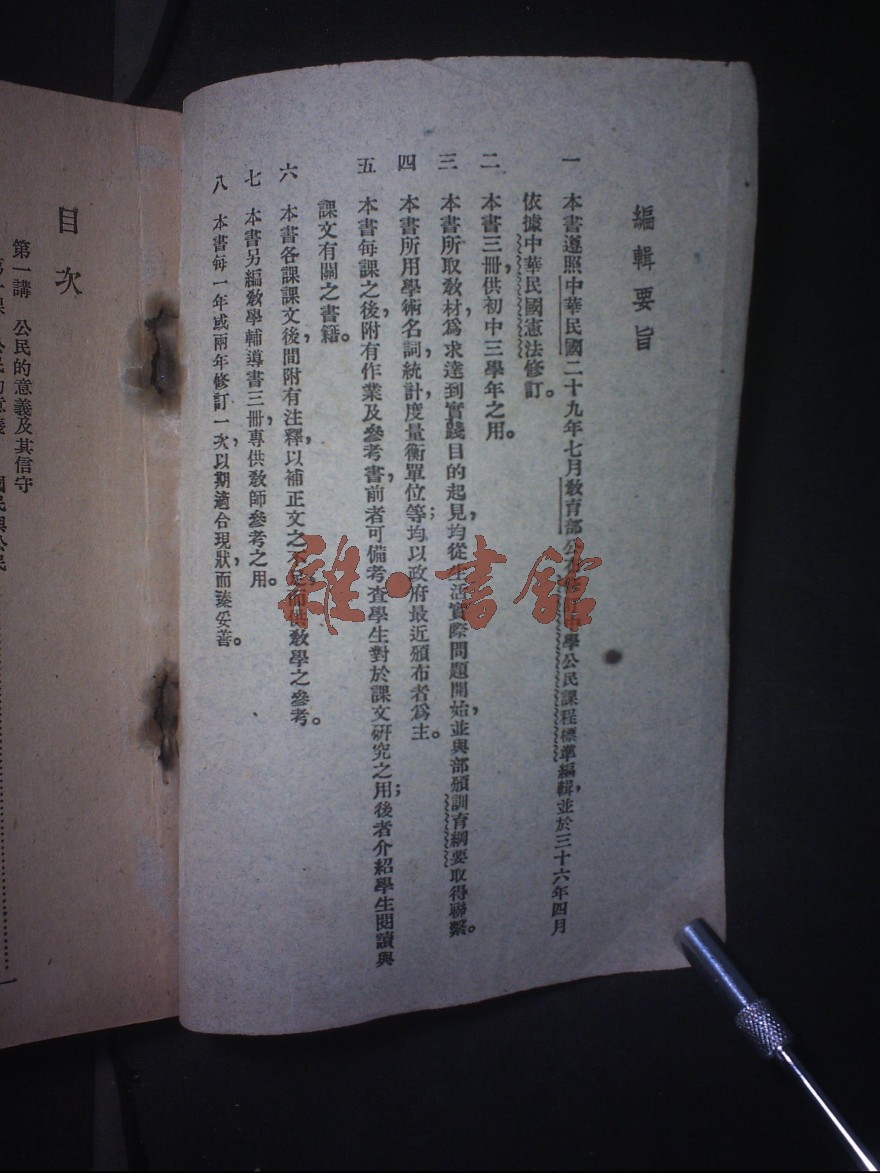 編輯要旨
一 本書遵照中華民國二十九年七月教育部公布 中學公民課程標準編輯，並於三十六年四月
依據中華民國憲法修訂。
二 本書三冊，供初中三學年之用。
三 本書所取教材，爲求達到實踐目的起見，均從生活實際問題開始，並與部頒訓育綱要取得聯繫。
四 本書所用學術名詞，統計，度量衡單位等；均以政府最近頒布者爲主。
五 本書每課之後，附有作業及參考書，前者可備考查學生對於課文研究之用；後者介紹學生閱讀與
課文有關之書籍。
六 本書各課課文後，間附有注釋，以補正文之不足，而供教學之參考。
七 本書另編教學輔導書三冊，專供教師參考之用。
八 本書每一年或兩年修訂一次，以期適合現狀，而臻妥善。
雜·書館
目次
第一講 公民的意義及其信守
第一課 公民的意義 國民與公民